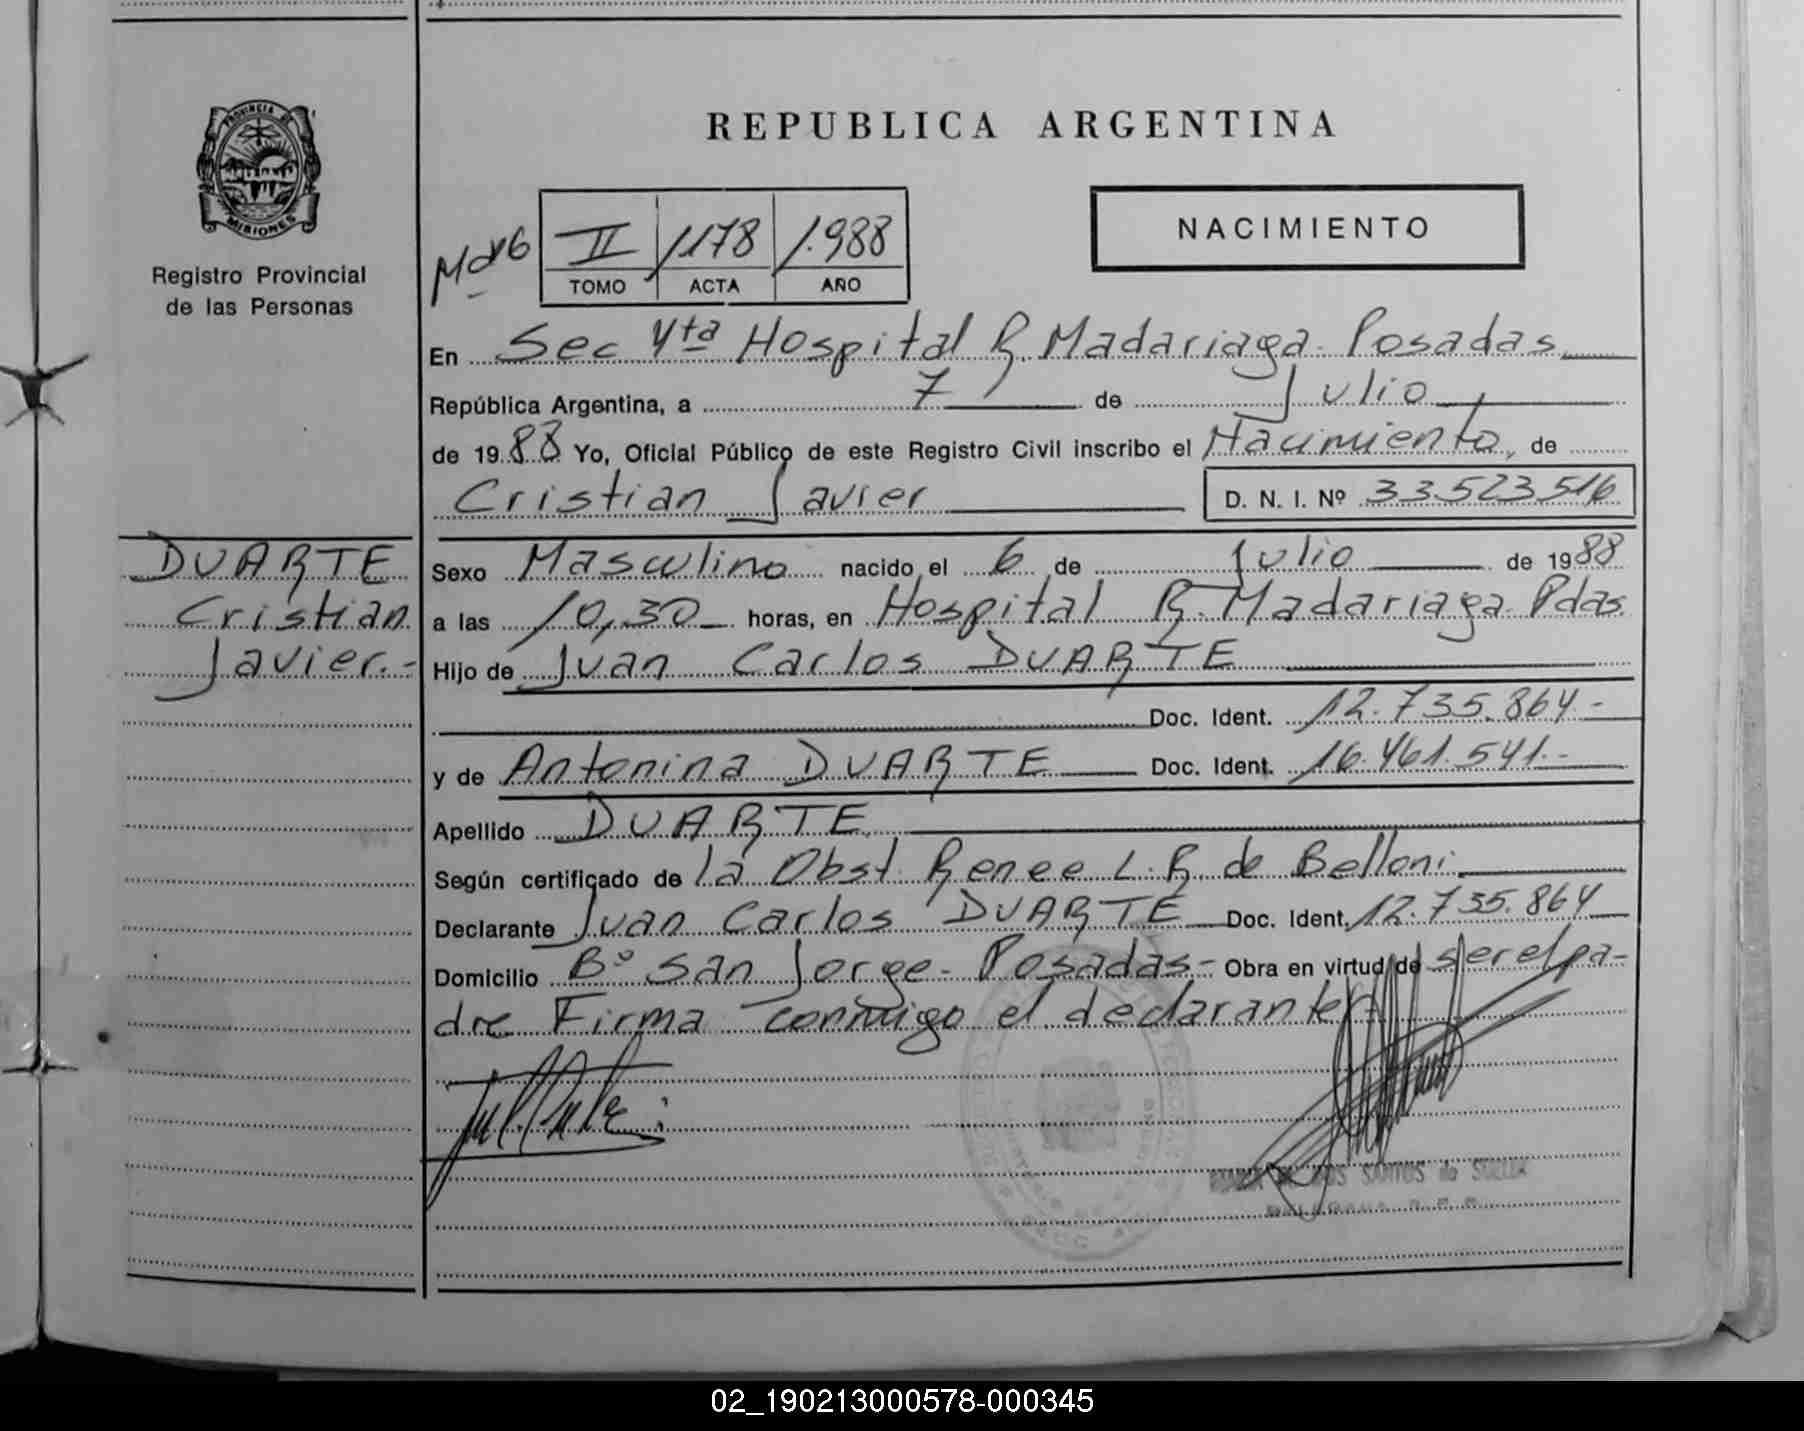 PROVINCIA DE
MISIONES
Registro Provincial
de las Personas
REPUBLICA ARGENTINA
II 1178 1.988
TOMO ACTA AÑO
NACIMIENTO
En Sec 4ta Hospital R. Madariaga. Posadas
República Argentina, a 7 de Julio
de 1988 Yo, Oficial Público de este Registro Civil inscribo el Nacimiento, de
Cristian Javier D. N. I. Nº 33.523.516
DUARTE
Cristian
Javier.-
Sexo Masculino nacido el 6 de Julio de 1988
a las 10,30 horas, en Hospital R. Madariaga. Pdas.
Hijo de Juan Carlos DUARTE
Doc. Ident. 12.735.864.-
y de Antonina DUARTE Doc. Ident. 16.461.541.-
Apellido DUARTE
Según certificado de la Obst. Renee L. R. de Belloni
Declarante Juan Carlos DUARTE Doc. Ident. 12.735.864
Domicilio Bº San Jorge - Posadas.- Obra en virtud de ser el pa-
dre Firma conmigo el declarante
DOS SANTOS de
02_190213000578-000345